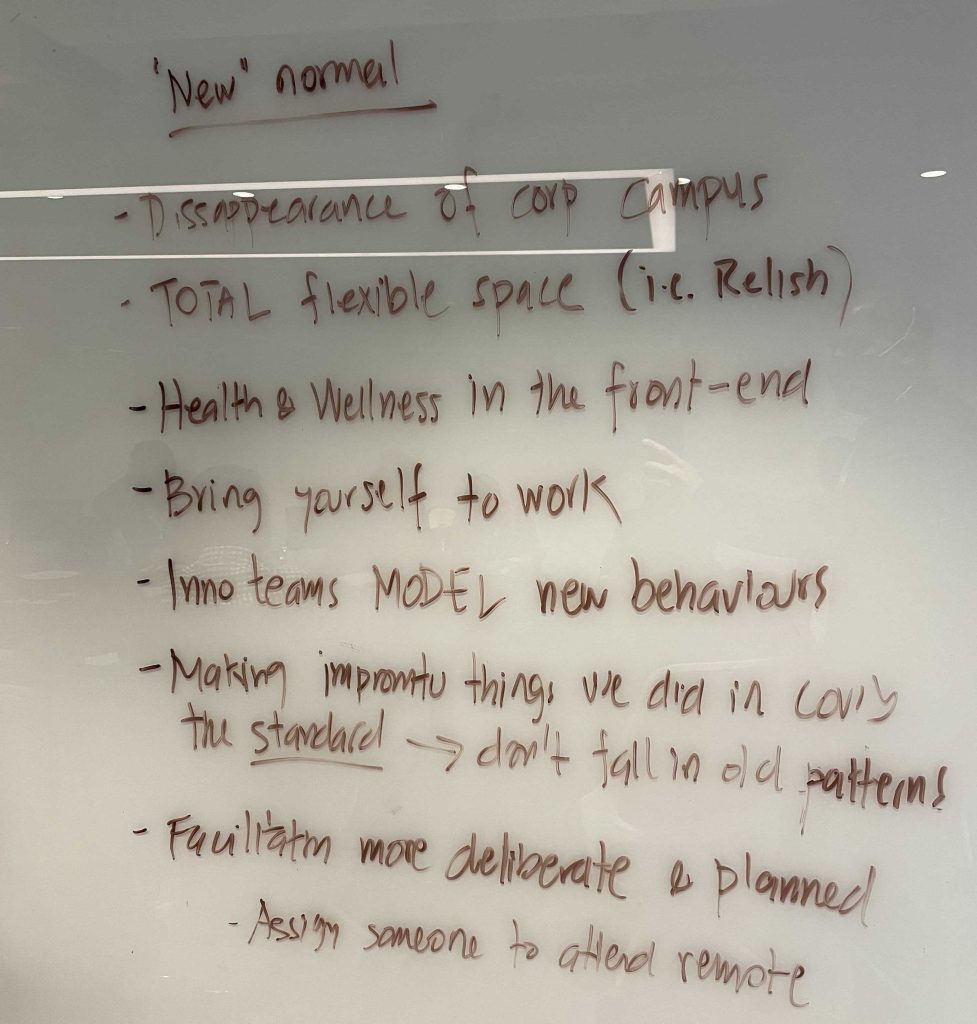 "New" normal
- Dissappearance of corp campus
- TOTAL flexible space (i.e. Relish)
- Health & Wellness in the front-end
- Bring yourself to work
- Inno teams MODEL new behaviours
- Making impromtu things we did in COVID
the standard → don't fall in old patterns
- Facilitatn more deliberate & planned
- Assign someone to attend remote